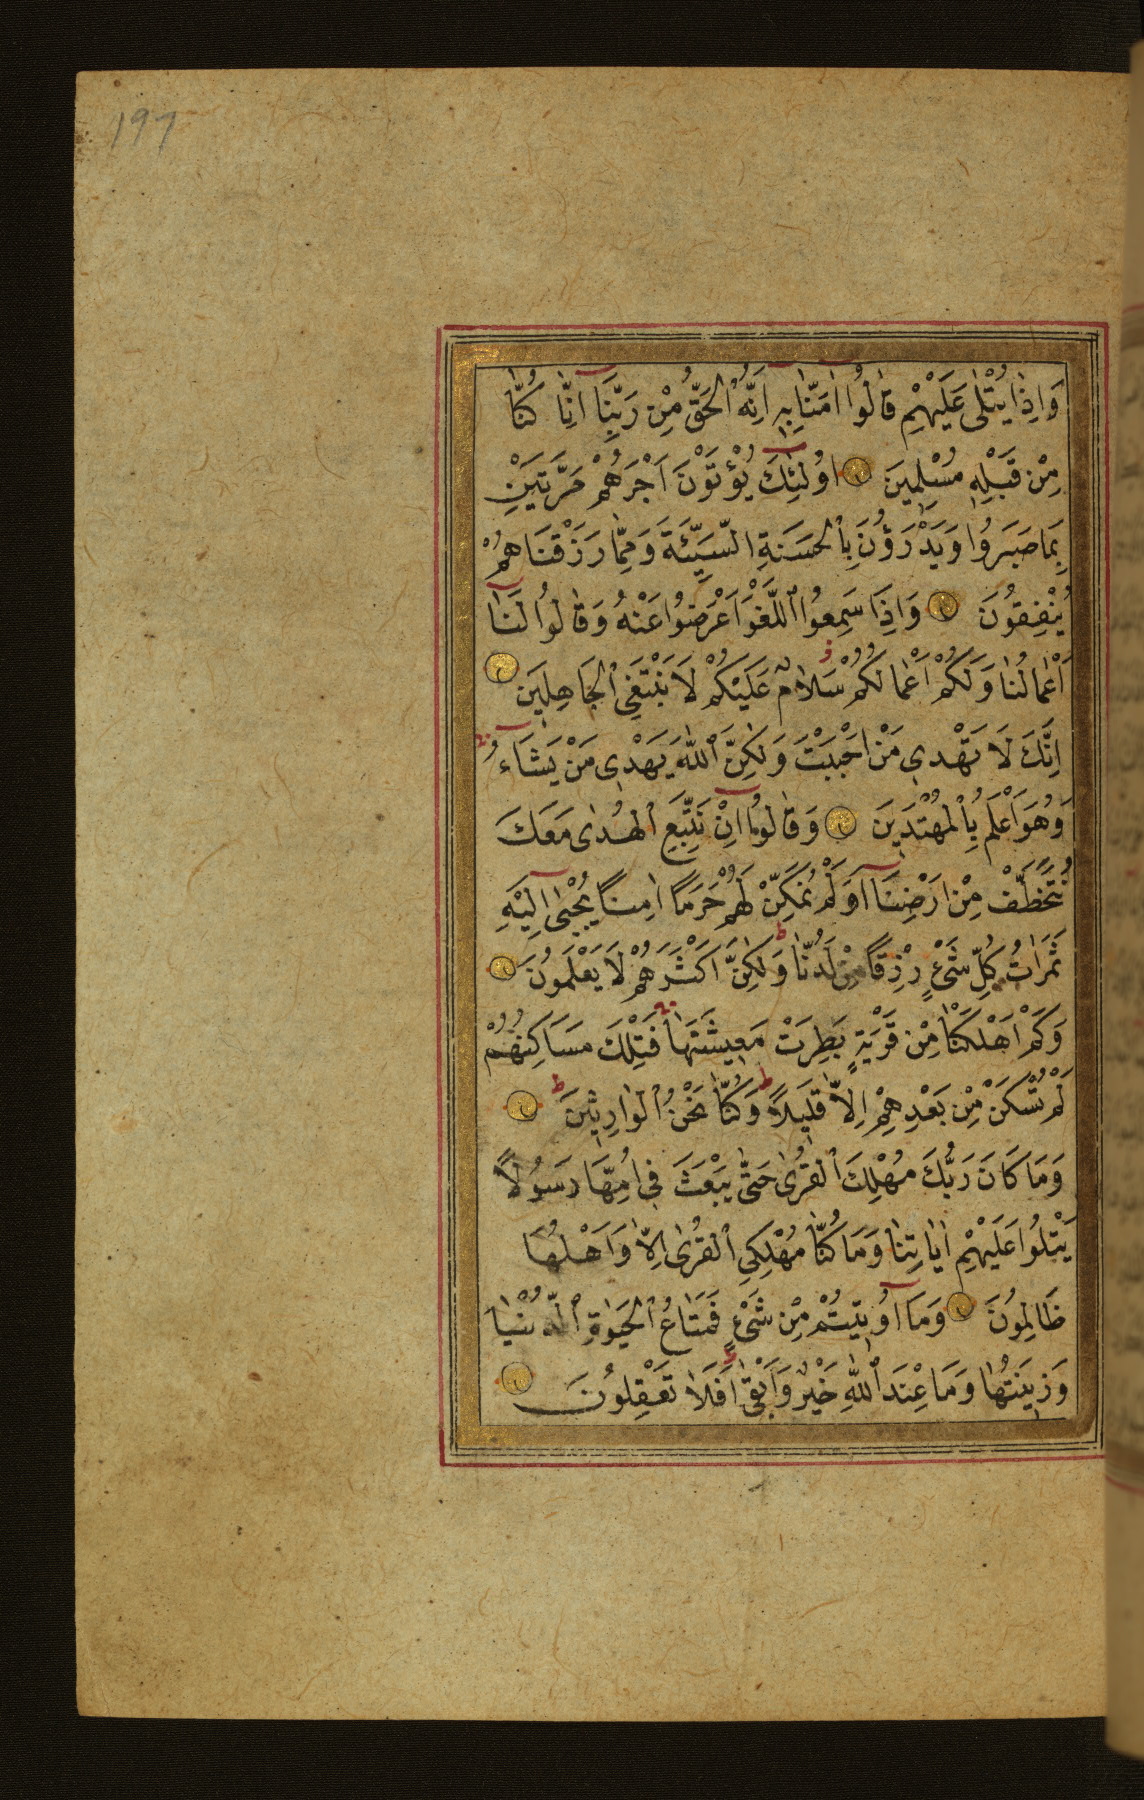 197
وَاِذَا يُتْلٰى عَلَيْهِمْ قَالُوا اٰمَنَّا بِهٖ اِنَّهُ الْحَقُّ مِنْ رَبِّنَا اِنَّا كُنَّا
مِنْ قَبْلِهٖ مُسْلِمِينَ اُولٰئِكَ يُؤْتَوْنَ اَجْرَهُمْ مَرَّتَيْنِ
بِمَا صَبَرُوا وَيَدْرَؤُنَ بِالْحَسَنَةِ السَّيِّئَةَ وَمِمَّا رَزَقْنَاهُمْ
يُنْفِقُونَ وَاِذَا سَمِعُوا اللَّغْوَ اَعْرَضُوا عَنْهُ وَقَالُوا لَنَا
اَعْمَالُنَا وَلَكُمْ اَعْمَالُكُمْ سَلَامٌ عَلَيْكُمْ لَا نَبْتَغِي الْجَاهِلِينَ
اِنَّكَ لَا تَهْدِي مَنْ اَحْبَبْتَ وَلٰكِنَّ اللّٰهَ يَهْدِي مَنْ يَشَاءُ
وَهُوَ اَعْلَمُ بِالْمُهْتَدِينَ وَقَالُوا اِنْ نَتَّبِعِ الْهُدٰى مَعَكَ
نُتَخَطَّفْ مِنْ اَرْضِنَا اَوَلَمْ نُمَكِّنْ لَهُمْ حَرَمًا اٰمِنًا يُجْبٰى اِلَيْهِ
ثَمَرَاتُ كُلِّ شَيْءٍ رِزْقًا مِنْ لَدُنَّا وَلٰكِنَّ اَكْثَرَهُمْ لَا يَعْلَمُونَ
وَكَمْ اَهْلَكْنَا مِنْ قَرْيَةٍ بَطِرَتْ مَعِيشَتَهَا فَتِلْكَ مَسَاكِنُهُمْ
لَمْ تُسْكَنْ مِنْ بَعْدِهِمْ اِلَّا قَلِيلًا وَكُنَّا نَحْنُ الْوَارِثِينَ
وَمَا كَانَ رَبُّكَ مُهْلِكَ الْقُرٰى حَتّٰى يَبْعَثَ فِي اُمِّهَا رَسُولًا
يَتْلُوا عَلَيْهِمْ اٰيَاتِنَا وَمَا كُنَّا مُهْلِكِي الْقُرٰى اِلَّا وَاَهْلُهَا
ظَالِمُونَ وَمَا اُوتِيتُمْ مِنْ شَيْءٍ فَمَتَاعُ الْحَيٰوةِ الدُّنْيَا
وَزِينَتُهَا وَمَا عِنْدَ اللّٰهِ خَيْرٌ وَاَبْقٰى اَفَلَا تَعْقِلُونَ